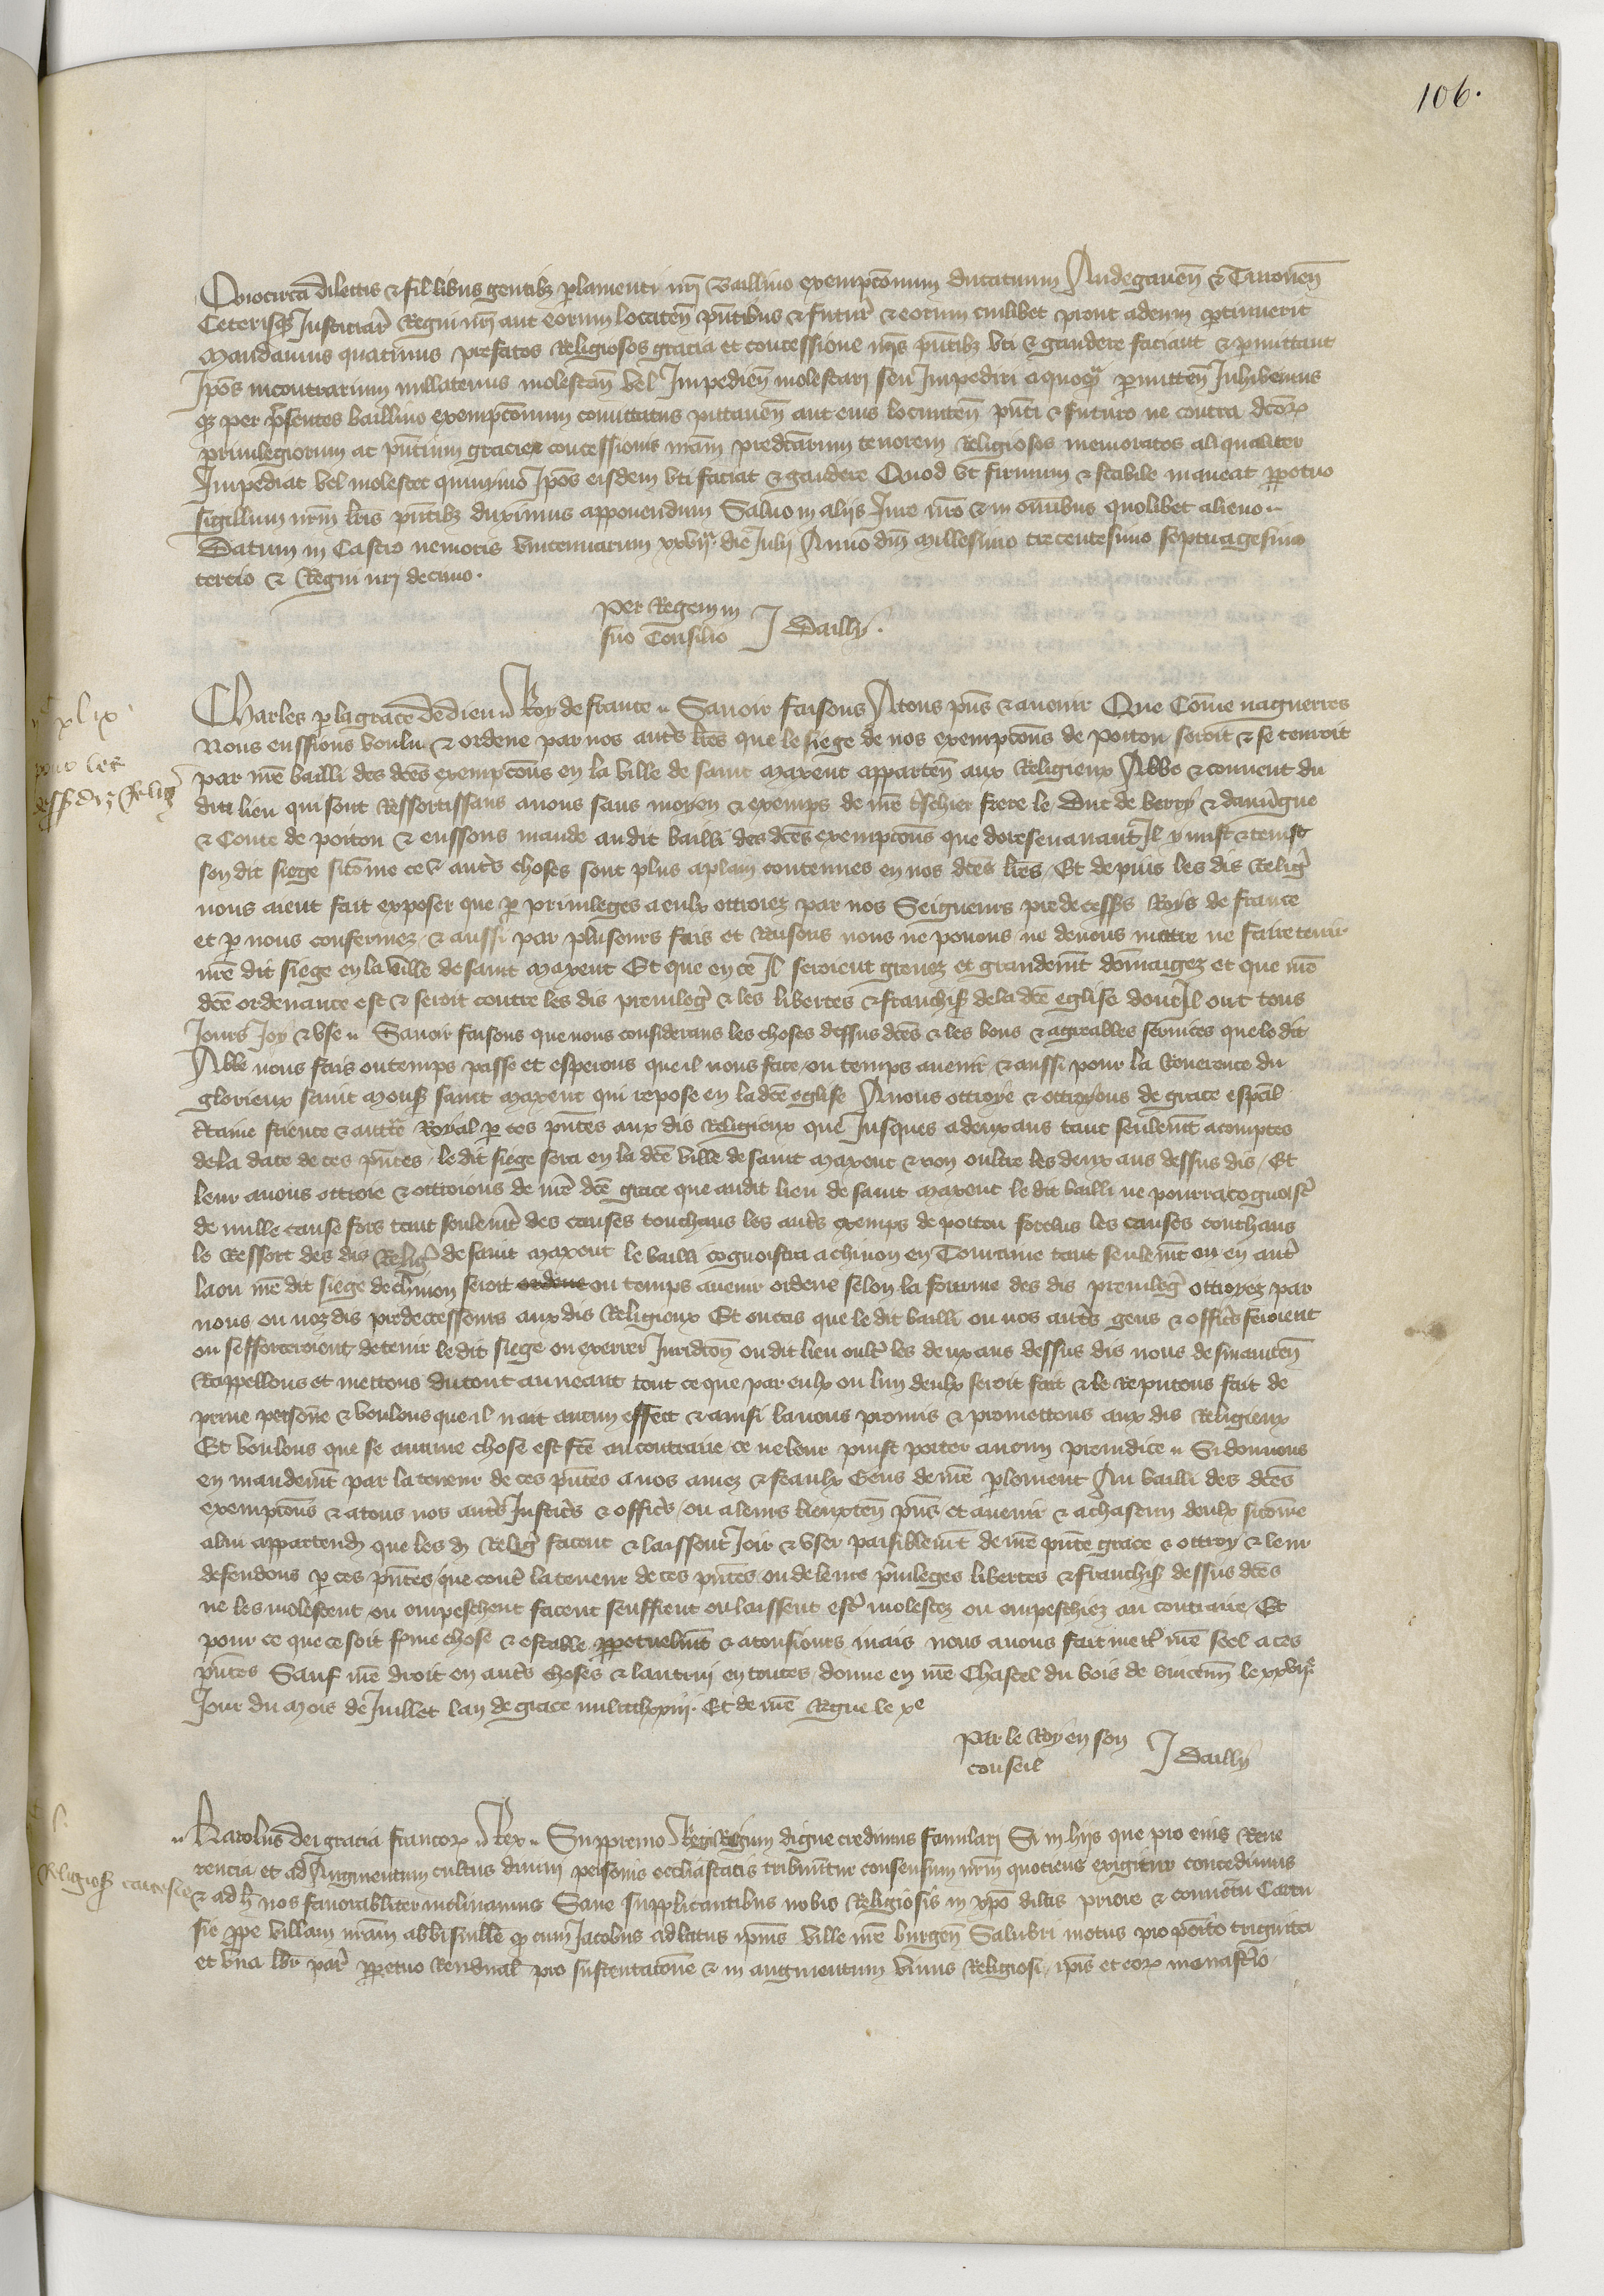 106.
Quocirca dilectis & fidelibus gentibȝ parlamenti nr̄i Baillivo exempcōnum ducatuum Andegaveñ & Turoneñ
Ceterisqȝ Justiciar̄ Regni nr̄i aut eorum locateñ pn̄tibus & futur̄ & eorum cuilibet prout ad eum ptinuerit
Mandamus quatinus prefatos Religiosos gracia et concessione nr̄is pn̄tibȝ uti & gaudere faciant & pmittant
Ipōs incontrarium nullatenus molestañ vel Impedieñ molestari seu Impediri a quoqȝ pmitteñ Inhibemus
qȝ per pr̄sentes baillivo exempcōnum comittatus pittaveñ aut eius locumteñ pn̄ti & futuro ne contra dc̄oꝝ
privilegiorum ac pn̄tium gracie & concessionis nr̄am predc̄arum tenorem Religiosos memoratos aliqualiter
Impediat vel molestet quinymō Ipōs eisdem uti faciat & gaudere Quod ut firmum & stabile maneat ppetuo
Sigillum nr̄m lr̄is pn̄tibȝ duximus apponendum Salvo in aliis Jure nr̄o & in om̄ibus quolibet alieno
Datum in Castro nemoris vincennarum xxvijª die Julij Anno dn̄i millesimo trecentesimo septuagesimo
tercio & Regni nr̄i decimo.
Per Regem in
suo Consilio J Dailly.
xlix
pour les
dess diz Relig
Charles p la grace de dieu Roy de france Savoir faisons A tous pn̄s & avenir Que Cōme naguerres
Nous eussions voulu & ordene par nos autr̄s lr̄es que le siege de nos exempcōns de Poitou seroit & se tenroit
par nr̄e bailli des dc̄es exempcōns en la ville de saint Maxent apparteñ aux Religieux Abbe & convent du
dit lieu qui sont Ressortissans a nous sans moyen & exemps de nr̄e tr̄schier frere le Duc de berry & dauv̄gne
& Conte de poitou & eussons mande audit bailli des dc̄es exempcōns que doresenavant Il y mist & tenist
son dit siege sicōme ce & autr̄s choses sont plus aplain contenues en nos dc̄es lr̄es / Et depuis les dis Reliḡ
nous aient fait exposer que p privileges a eulx ottroiez par nos Seigneurs predecess̄s Roys de france
et p nous confermez / & aussi par pluseurs fais et Raisons nous ne povons ne devons mettre ne faire tenir
nr̄e dit siege en la ville de saint Maxent Et que en ce Il seroient grevez et grandemt̄ dōmaigez et que nr̄e
dc̄e ordenance est & seroit contre les dis previleḡ & les libertes & franchisȝ de la dc̄e eglise dont Il ont tous
Jours Joy & use Savoir faisons que nous considerans les choses dessus dc̄es & les bons & agreables services que le dit
Abbe nous fais ou temps passe et esperons que il nous face / ou temps avenir / & aussi pour la Reverence du
glorieux saint Monsȝ saint Maxent qui repose en la dc̄e eglise Avons ottroye & ottroyons de grace esp̄cal
c̄taine science & auctt̄e Royal p ces pn̄tes aux dis Religieux que Jusques a deux ans tant seulemt̄ acomptes
de la date de ces pn̄tes / le dit siege sera en la dc̄e ville de saint Maxent & non oultre les deux ans dessus dis / Et
leur avons ottroie & ottroions de nr̄e dc̄e grace que audit lieu de saint Maxent le dit bailli ne pourra cognoistr̄
de nulle cause fors tant seulemt̄ des causes touchans les autr̄s exemps de poitou forclus les causes touchans
le Ressort des dis Reliḡ de saint Maxent le bailli cognoistra a chinon en Touraine tant seulemt̄ ou en autr̄
la ou nr̄e dit siege de chinon seroit ordene ou temps avenir ordene selon la fourme des dis previleḡ ottroyez par
nous / ou noz dis predecesseurs aux dis Religieux Et ou cas que le dit bailli ou nos autr̄s gens & offic̄rs feroient
ou sefforceroient de tenir le dit siege ou exercer Juridc̄on ou dit lieu oultr̄ les deux ans dessus dis nous desmainteñ
Rappellons et mettons du tout au neant tout ce que par eulx ou lun deulx seroit fait & le Reputons fait de
privee persōne & voulons que il nait aucun effect & ainsi lavons promis & promettons aux dis Religieux
Et voulons que se aucune chose est fc̄e au contraire ce ne leur puist porter aucun preiudice Si donnons
en mandemt̄ par la teneur de ces pn̄tes a nos amez & feaulx Gens de nr̄e plement Au bailli des dc̄es
exempcōns & a tous nos autr̄s Justic̄rs & offic̄rs / ou a leurs lieuxteñ pn̄s et avenir & a chascun deulx sicōme
a lui appartendȝ que les dȝ Reliḡ facent & laissent Joir & user paisiblemt̄ de nr̄e pn̄te grace & ottroy & leur
defendons p ces pn̄tes que contr̄ la teneur de ces pn̄tes ou de leurs p̄vileges libertes & franchisȝ dessus dc̄es
ne les molestent ou empeschent facent seuffrent ou laissent estr̄ molestez ou empeschiez au contraire / Et
pour ce que ce soit fr̄me chose & estable ppetuelmt̄ & a tousiours mais nous avons fait mettr̄ nr̄e seel a ces
pn̄tes Sauf nr̄e droit en autr̄s choses & lautrui en toutes / donne en nr̄e Chastel du bois de vincenñ le xxvijᵉ
Jour du Mois de Juillet lan de grace mil ccclxxiij. Et de nr̄e Regne le xᵉ
Par le Roy en son
conseil J Dailly
l.
Religiosȝ cartusie
Karolus dei gracia francoꝝ Rex Suppremo Regi Regum digne credimus famulari Si in hijs que pro eius Reve
rencia et ad Augmentum cultus divini personis eccl̄iasticis tribuuntur consensum nr̄m quotiens exigitur concedimus
& ad h̄ nos favorabiliter inclinamus Sane supplicantibus nobis Religiosis in xp̄o dilc̄is priore & conventu Cartu
sie ppe villam nr̄am abbisville qȝ cum Jacobus ad latus ipius ville nr̄e burgeñ Salubri motus proposito triginta
et una libr̄ par̄ ppetuo Rendual̄ pro sustentacōne & in augmentum unius Religiosi / ipis et eoꝝ monastr̄io